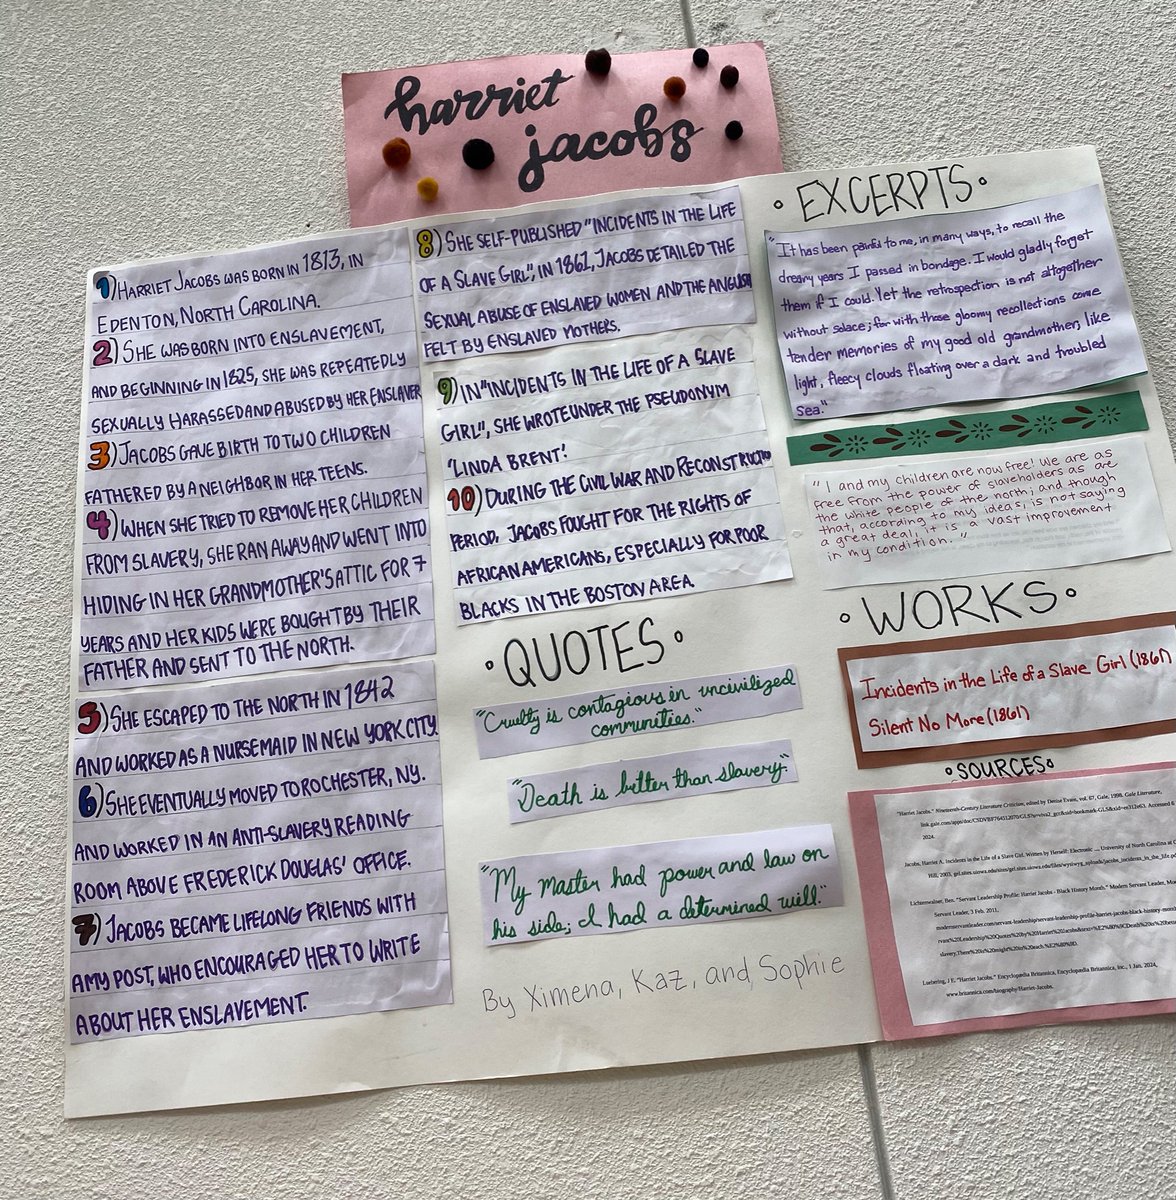 harriet
jacobs
1) HARRIET JACOBS WAS BORN IN 1813, IN
EDENTON, NORTH CAROLINA.
2) SHE WAS BORN INTO ENSLAVEMENT,
AND BEGINNING IN 1825, SHE WAS REPEATEDLY
SEXUALLY HARASSED AND ABUSED BY HER ENSLAVER
3) JACOBS GAVE BIRTH TO TWO CHILDREN
FATHERED BY A NEIGHBOR IN HER TEENS.
4) WHEN SHE TRIED TO REMOVE HER CHILDREN
FROM SLAVERY, SHE RAN AWAY AND WENT INTO
HIDING IN HER GRANDMOTHER'S ATTIC FOR 7
YEARS AND HER KIDS WERE BOUGHT BY THEIR
FATHER AND SENT TO THE NORTH.
5) SHE ESCAPED TO THE NORTH IN 1842
AND WORKED AS A NURSEMAID IN NEW YORK CITY.
6) SHE EVENTUALLY MOVED TO ROCHESTER, NY.
AND WORKED IN AN ANTI-SLAVERY READING
ROOM ABOVE FREDERICK DOUGLAS' OFFICE.
7) JACOBS BECAME LIFELONG FRIENDS WITH
AMY POST, WHO ENCOURAGED HER TO WRITE
ABOUT HER ENSLAVEMENT.
8) SHE SELF-PUBLISHED "INCIDENTS IN THE LIFE
OF A SLAVE GIRL", IN 1861, JACOBS DETAILED THE
SEXUAL ABUSE OF ENSLAVED WOMEN AND THE ANGUISH
FELT BY ENSLAVED MOTHERS.
9) IN "INCIDENTS IN THE LIFE OF A SLAVE
GIRL", SHE WROTE UNDER THE PSEUDONYM
'LINDA BRENT'.
10) DURING THE CIVIL WAR AND RECONSTRUCTION
PERIOD, JACOBS FOUGHT FOR THE RIGHTS OF
AFRICAN AMERICANS, ESPECIALLY FOR POOR
BLACKS IN THE BOSTON AREA.
QUOTES
"Cruelty is contagious in uncivilized
communities."
"Death is better than slavery."
"My master had power and law on
his side; I had a determined will."
By Ximena, Kaz, and Sophie
EXCERPTS
"It has been painful to me, in many ways, to recall the
dreary years I passed in bondage. I would gladly forget
them if I could. Yet the retrospection is not altogether
without solace; for with those gloomy recollections come
tender memories of my good old grandmother, like
light, fleecy clouds floating over a dark and troubled
sea."
"I and my children are now free! We are as
free from the power of slaveholders as are
the white people of the north; and though
that, according to my ideas, is not saying
a great deal, it is a vast improvement
in my condition."
WORKS
Incidents in the Life of a Slave Girl (1861)
Silent No More (1861)
SOURCES
"Harriet Jacobs." Nineteenth-Century Literature Criticism, edited by Denise Evans, vol. 67, Gale, 1998. Gale Literature,
2024.
Jacobs, Harriet A. Incidents in the Life of a Slave Girl. Written by Herself: Electronic __ University of North Carolina at C
Lichtenwalner, Ben. "Servant Leadership Profile: Harriet Jacobs - Black History Month." Modern Servant Leader, Mod
Servant Leader, 3 Feb. 2011,
Luebering, J E. "Harriet Jacobs." Encyclopædia Britannica, Encyclopædia Britannica, Inc., 1 Jan. 2024,
www.britannica.com/biography/Harriet-Jacobs.